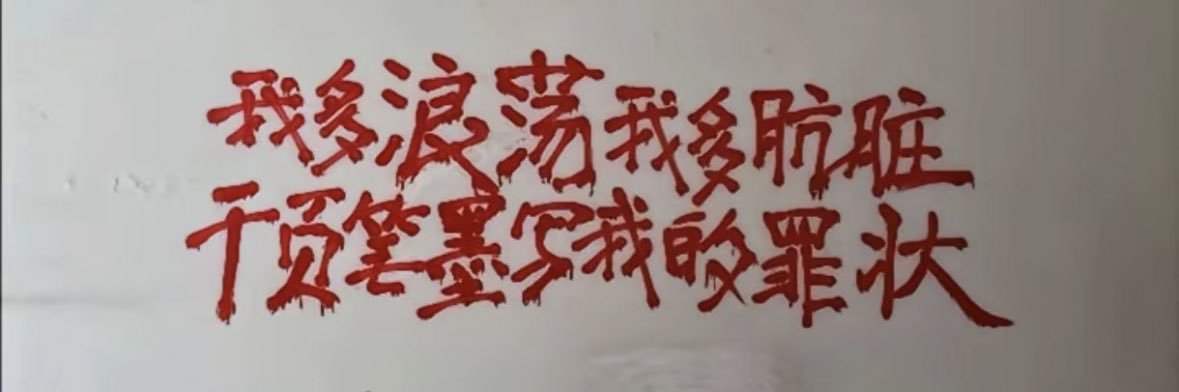 我多浪荡我多肮脏
千页笔墨写我的罪状